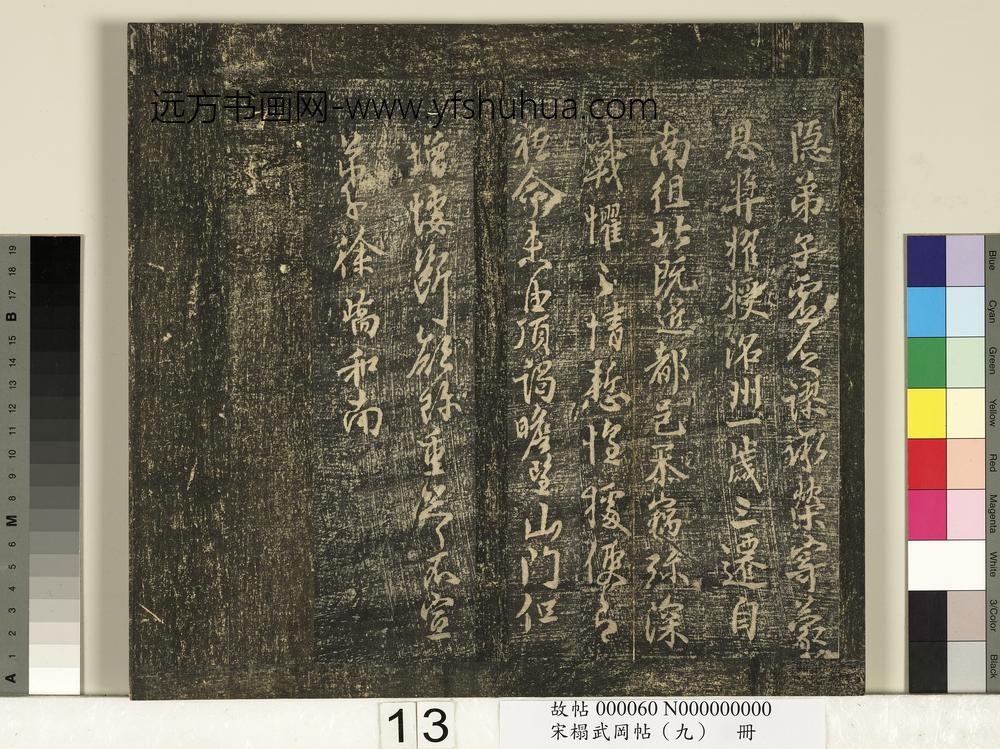 远方书画网-www.yfshuhua.com
隱弟子虛謬承榮寄蒙
恩獎擢授洺州一歲三遷自
南徂北既近都邑忝竊弥深
戰懼之情惶便即
祗命未由頂謁瞻望山門但
增悽斷願珍重謹不宣
弟子徐嶠和南
13
故帖 000060 N000000000
宋榻武岡帖（九） 冊
Blue
Cyan
Green
Yellow
Red
Magenta
White
3/Color
Black
A 1 2 3 4 5 6 M 8 9 10 11 12 13 14 15 B 17 18 19